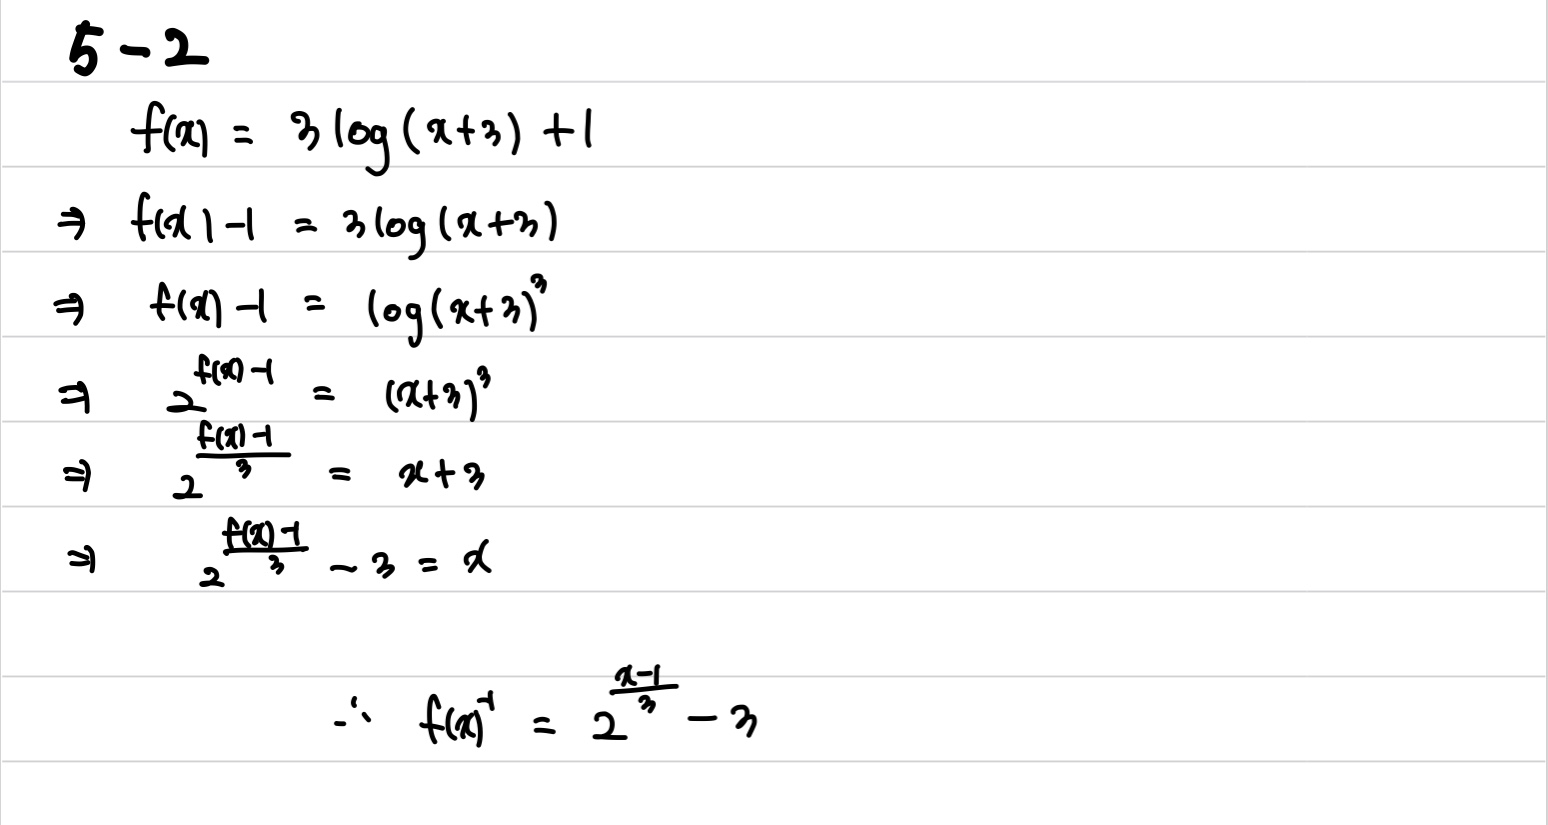 5-2
f(x) = 3 log (x+3) +1
⇒ f(x) -1 = 3 log (x+3)
⇒ f(x) -1 = log (x+3)³
⇒ 2^(f(x)-1) = (x+3)³
⇒ 2^((f(x)-1)/3) = x+3
⇒ 2^((f(x)-1)/3) - 3 = x
∴ f(x)⁻¹ = 2^((x-1)/3) - 3